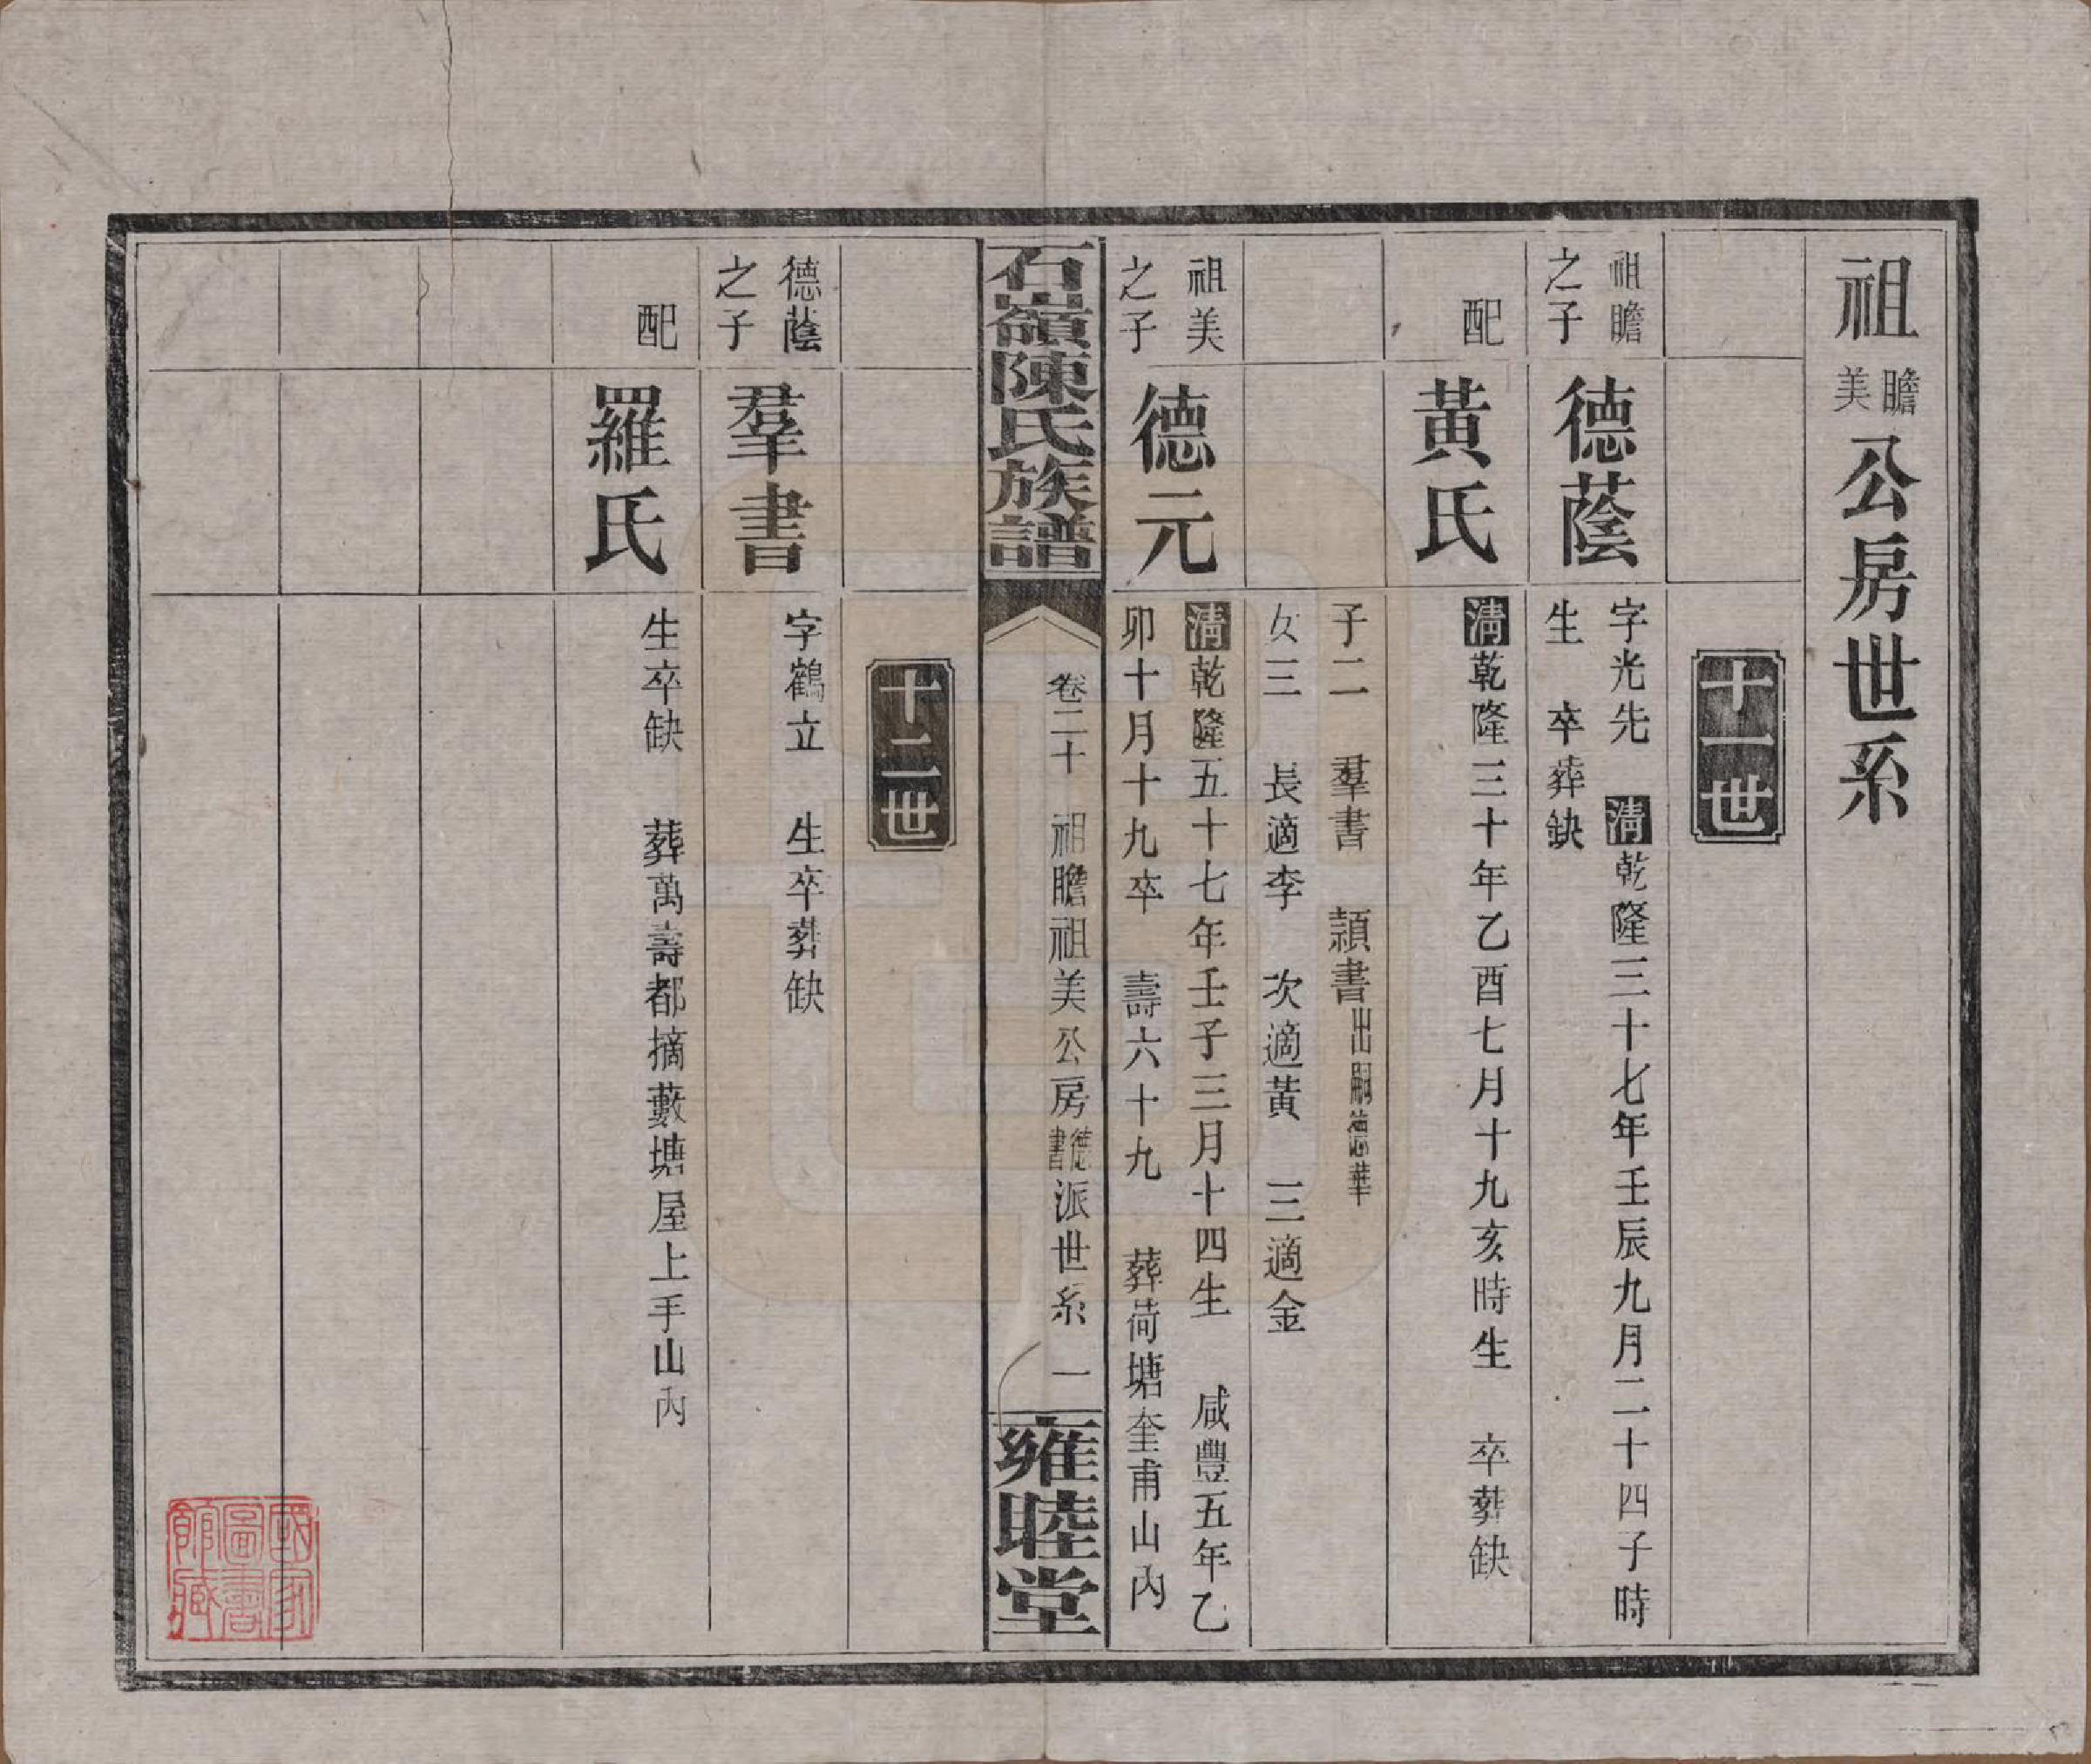 祖瞻美公房世系
十一世
祖瞻
之子
德蔭
字光先　清乾隆三十七年壬辰九月二十四子時
生　卒葬缺
配
黃氏
清乾隆三十年乙酉七月十九亥時生　卒葬缺
子二　羣書　頴書出嗣德華
女三　長適李　次適黃　三適金
祖美
之子
德元
清乾隆五十七年壬子三月十四生　咸豐五年乙
卯十月十九卒　壽六十九　葬荷塘奎甫山內
石嶺陳氏族譜
卷二十　祖瞻祖美公房德書派世系　一
雍睦堂
十二世
德蔭
之子
羣書
字鶴立　生卒葬缺
配
羅氏
生卒缺　葬萬壽都摘藪塘屋上手山內
國家
圖書
館藏